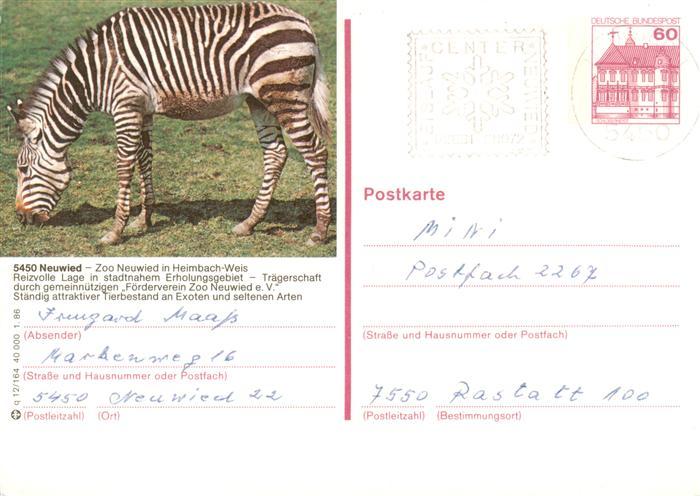 DEUTSCHE BUNDESPOST
60
EISLAUF CENTER NEUWIED
5450
Postkarte
MiNi
Postfach 2267
(Straße und Hausnummer oder Postfach)
7550 Rastatt 100
(Postleitzahl) (Bestimmungsort)
5450 Neuwied – Zoo Neuwied in Heimbach-Weis
Reizvolle Lage in stadtnahem Erholungsgebiet – Trägerschaft
durch gemeinnützigen „Förderverein Zoo Neuwied e. V."
Ständig attraktiver Tierbestand an Exoten und seltenen Arten
Irmgard Maaß
(Absender)
Markenweg 16
(Straße und Hausnummer oder Postfach)
5450 Neuwied 22
(Postleitzahl) (Ort)
q 12/164 40 000 1.86